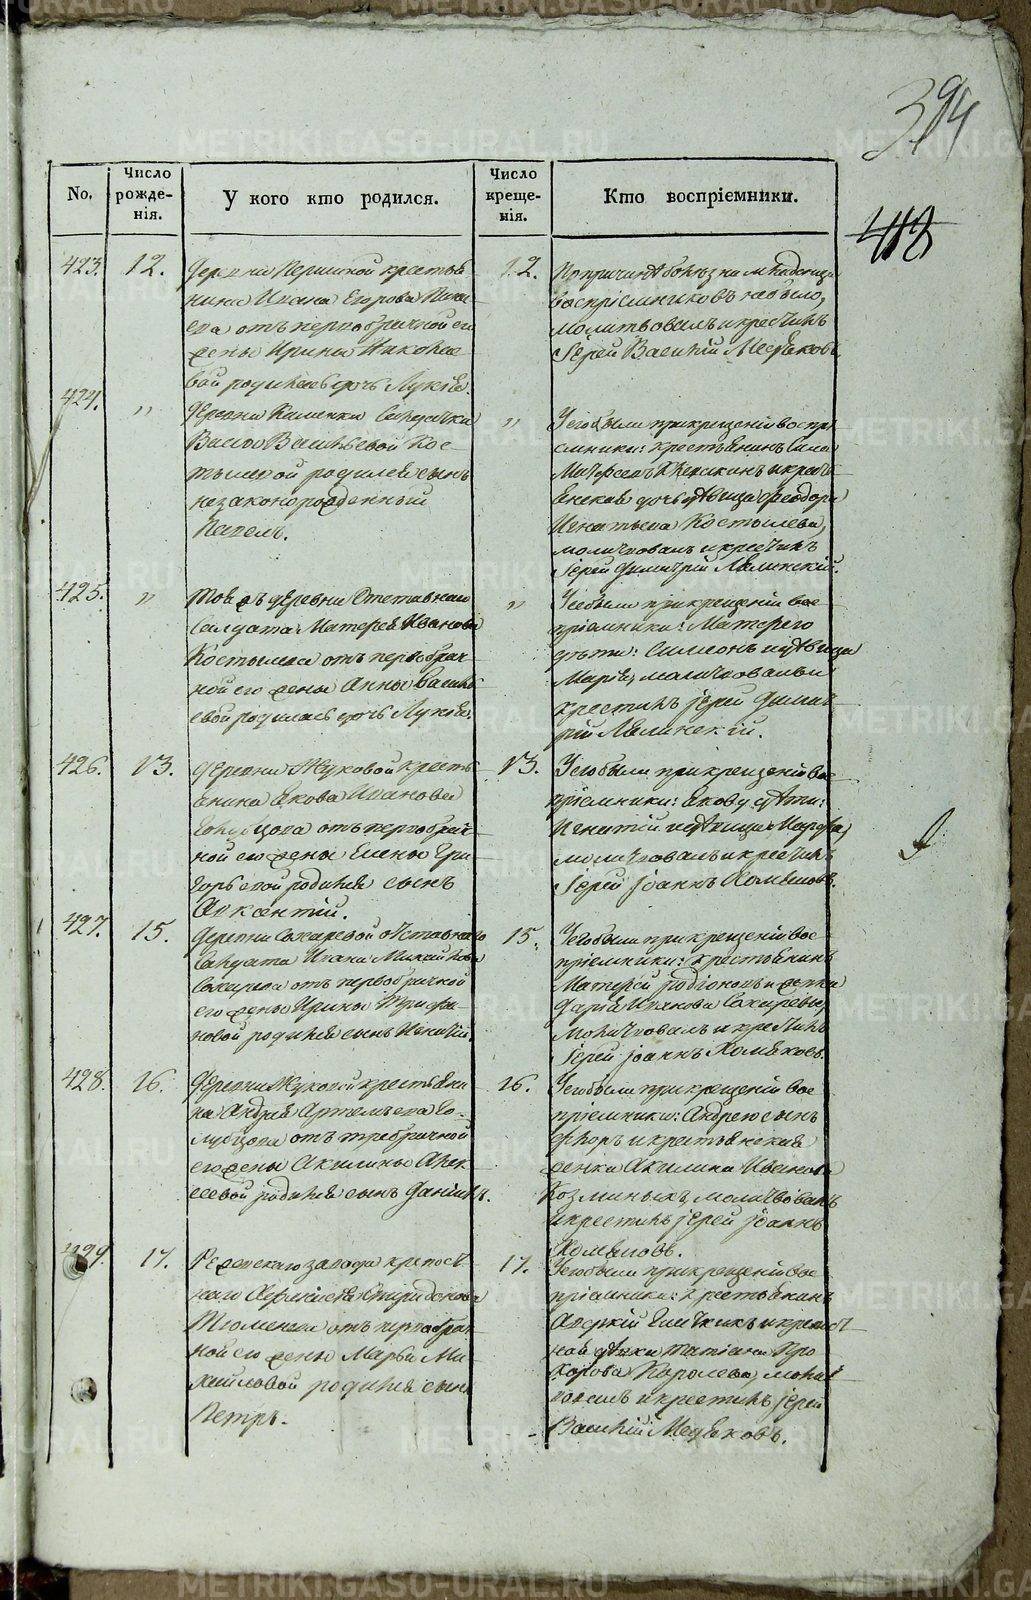 394
412
No.
Число рожденія.
У кого кто родился.
Число крещенія.
Кто воспріемники.
423.
12.
Деревни Першиной крестья
нина Ивана Егорова
отъ первобрачной его
жены Ирины Николае
вой родилась дочь Лукія.
12.
По причинѣ болѣзни младенца
воспріемниковъ не было,
молитвовалъ и крестилъ
Іерей Василій Медяковъ
424.
"
Деревни Каменки солдатки
Васильевой Кос
тылевой родился сынъ
незаконорожденный
Павелъ.
"
У его были при крещеніи воспрі
емники: крестьянинъ
и кресть
янская дочь дѣвица Феодора
Игнатьева Костылева,
молитвовалъ и крестилъ
Іерей Димитрій
425.
"
Той жъ деревни Отставнаго
Солдата Матфея Иванова
Костылева отъ первобрач
ной его жены Анны Василь
евой родилась дочь Лукія.
"
У ее были при крещеніи вос
пріемники: Матфея его
дѣти: Симеонъ и дѣвица
Марія, молитвовалъ и
крестилъ Іерей Димит
рій
426.
13.
Деревни Жуковой кресть
янина Якова Иванова
Голубцова отъ первобрач
ной его жены Елены Гри
горьевой родился сынъ
Авксентій.
13.
У его были при крещеніи вос
пріемники: Якову дѣти:
Игнатій и дѣвица Марфа,
молитвовалъ и крестилъ
Іерей Іоаннъ Хомяковъ.
427.
15.
Деревни Сохаревой отставнаго
Солдата Ивана Михайлова
Сохарева отъ первобрачной
его жены Ирины Трифо
новой родился сынъ Игнатій.
15.
У его были при крещеніи вос
пріемники: крестьянинъ
Матфей Родіоновъ и женка
Дарья Иванова Сохаревы,
молитвовалъ и крестилъ
Іерей Іоаннъ Хомяковъ.
428.
16.
Деревни Жуковой крестьяни
на Андрея Артемьева Го
лубцова отъ требрачной
его жены Акилины Алек
сеевой родился сынъ Даніилъ.
16.
У его были при крещеніи вос
пріемники: Андрею сынъ
Ѳеодоръ и крестьянская
женка Акилина Иванова
Козминыхъ, молитвовалъ
и крестилъ Іерей Іоаннъ
Хомяковъ.
429.
17.
Режевскаго завода крепост
наго Спиридонова
отъ первобрач
ной его жены Марьи Ми
хайловой родился сынъ
Петръ.
17.
У его были при крещеніи вос
пріемники: крестьянинъ
и крепост
ной дѣвки Татіана Про
хорова Королева, молит
вовалъ и крестилъ Іерей
Василій Медяковъ.
METRIKI.GASO-URAL.RU